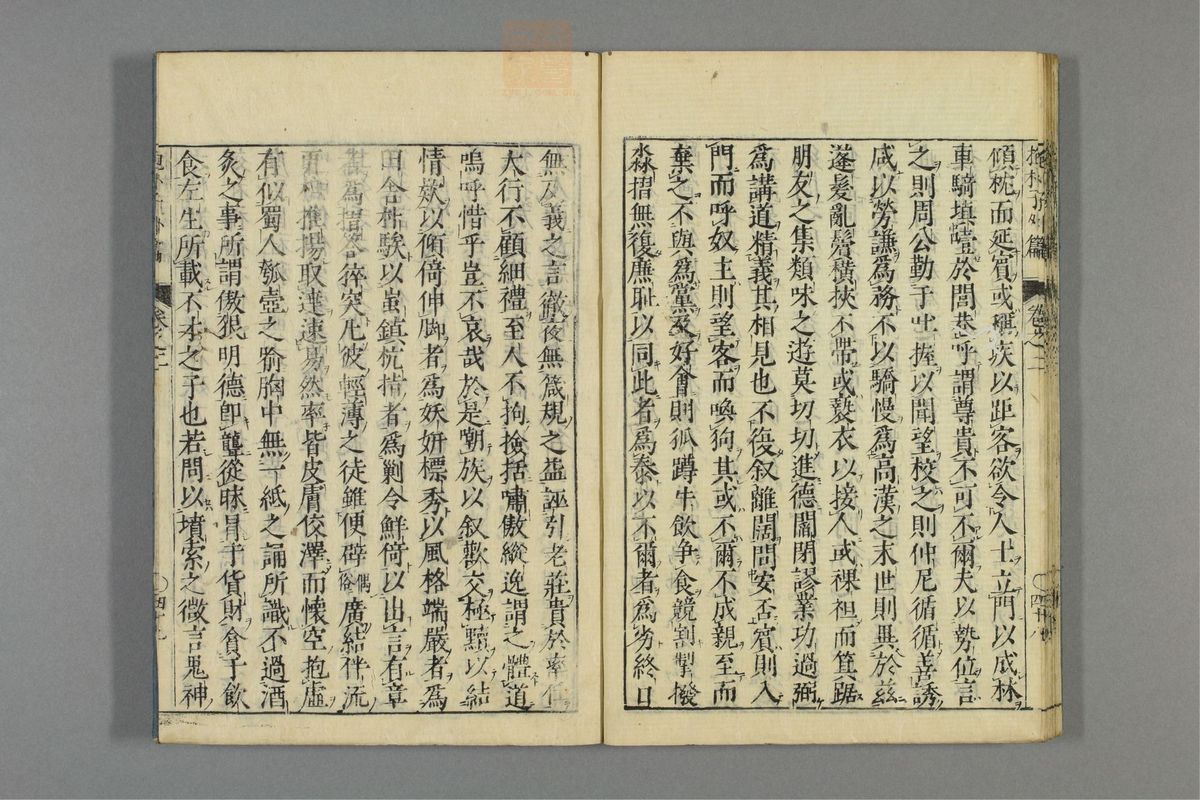 抱朴子外篇 卷之二 四十八
傾枕而延賓或稱疾以距客欲令人士立門以成林
車騎填噎於閭巷呼謂尊貴不可不爾夫以勢位言
之則周公勤于吐握以聞望校之則仲尼循循善誘
咸以勞謙爲務不以驕慢爲高漢之末世則異於茲
蓬髮亂鬢橫挾不帶或褻衣以接人或裸袒而箕踞
朋友之集類味之遊莫切切進德誾誾諺業功過弼
爲講道精義其相見也不復叙離闊問安否賓則入
門而呼奴主則望客而喚狗其或不爾不成親至而
棄之不與爲黨及好會則狐蹲牛飲争食競割掣撥
淼摺無復廉耻以同此者爲泰以不爾者爲劣終日
無及義之言徹夜無箴規之益誣引老莊貴於率任
大行不顧細禮至人不拘撿括嘯傲縱逸謂之體道
嗚呼惜乎豈不哀哉於是嘲族以叙歡交極黷以結
情款以傾倚伸脚者爲妖妍標秀以風格端嚴者爲
田舍朴騃以蚩鎮抗指者爲勦令鮮倚以出言有章
爲摺答猝突凡彼輕薄之徒雖便辟偶俗廣結伴流
更 推揚取達速易然率皆皮膚佼澤而懷空抱虛
有似蜀人瓠壺之喻胸中無一紙之誦所識不過酒
炙之事所謂傲很明德卽聾從昧冐于貨財貪于飲
食左生所載不才之子也若問以墳索之微言鬼神